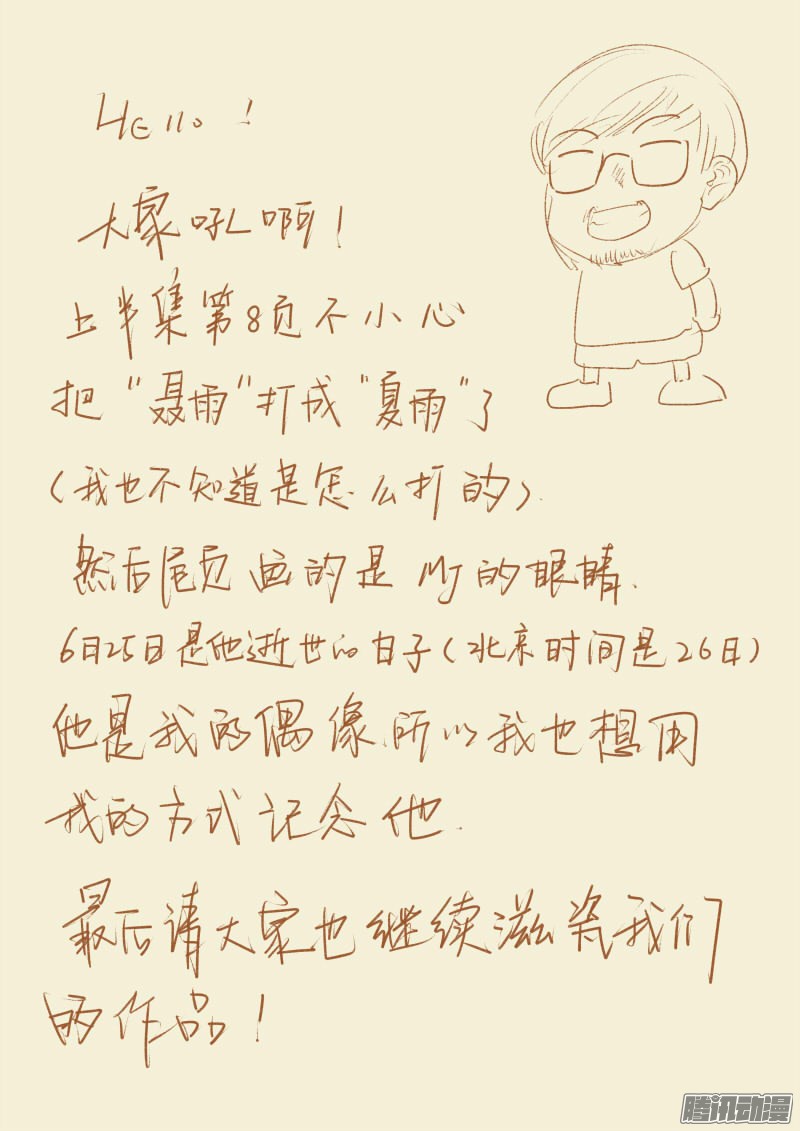 Hello!
大家吼啊!
上半集第8页不小心
把“聂雨”打成“夏雨”了
(我也不知道是怎么打的).
然后尾页画的是MJ的眼睛.
6月25日是他逝世的日子(北京时间是26日)
他是我的偶像.所以我也想用
我的方式记念他.
最后请大家也继续滋瓷我们
的作品!
腾讯动漫